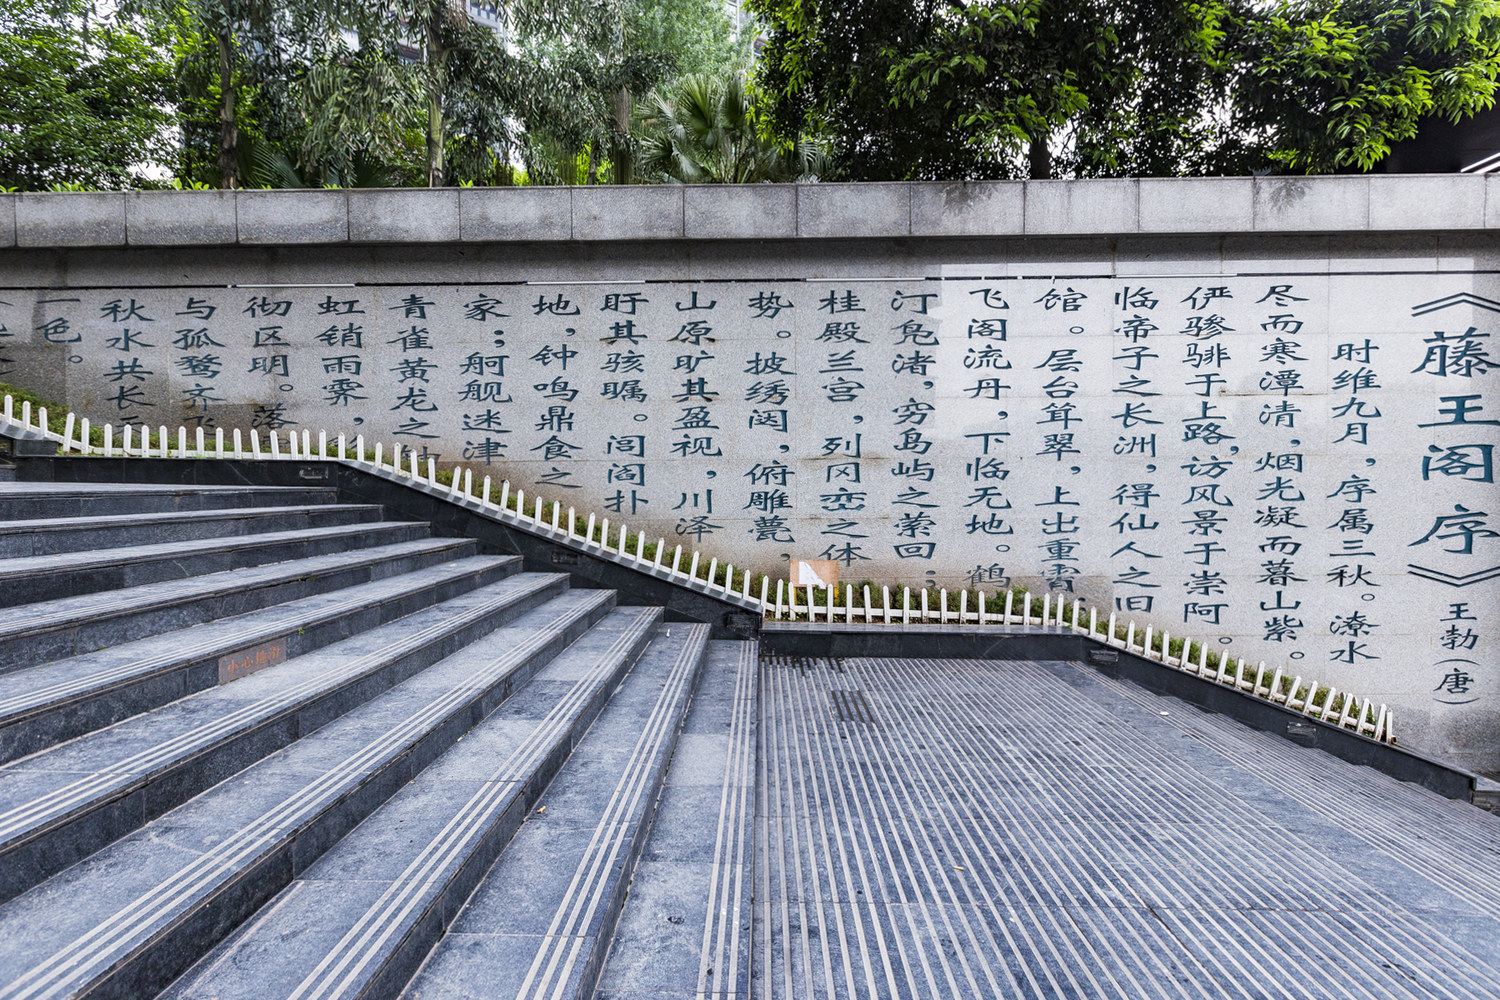 《滕王阁序》王勃（唐）
时维九月，序属三秋。潦水
尽而寒潭清，烟光凝而暮山紫。
俨骖騑于上路，访风景于崇阿。
临帝子之长洲，得仙人之旧
馆。层台耸翠，上出重霄；
飞阁流丹，下临无地。鹤
汀凫渚，穷岛屿之萦回；
桂殿兰宫，列冈峦之体
势。披绣闼，俯雕甍，
山原旷其盈视，川泽
盱其骇瞩。闾阎扑
地，钟鸣鼎食之
家；舸舰迷津
青雀黄龙之
虹销雨霁，
彻区明。落
与孤鹜齐飞
秋水共长
一色。
小心地滑